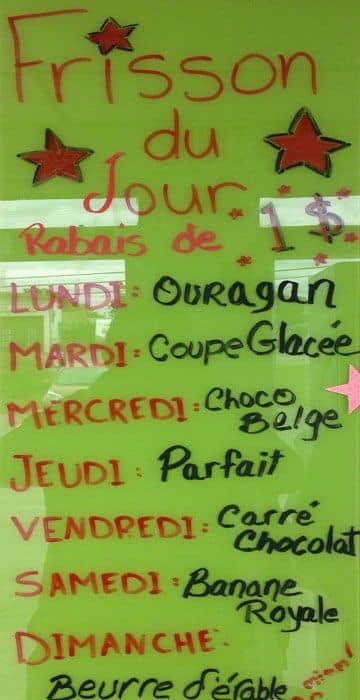 Frisson
du
Jour
Rabais de 1$
LUNDI: OURagan
MARDI: Coupe Glacée
MERCREDI: Choco
Belge
JEUDI: Parfait
VENDREDI: Carré
Chocolat
SAMEDI: Banane
Royale
DIMANCHE:
Beurre d'érable miam!